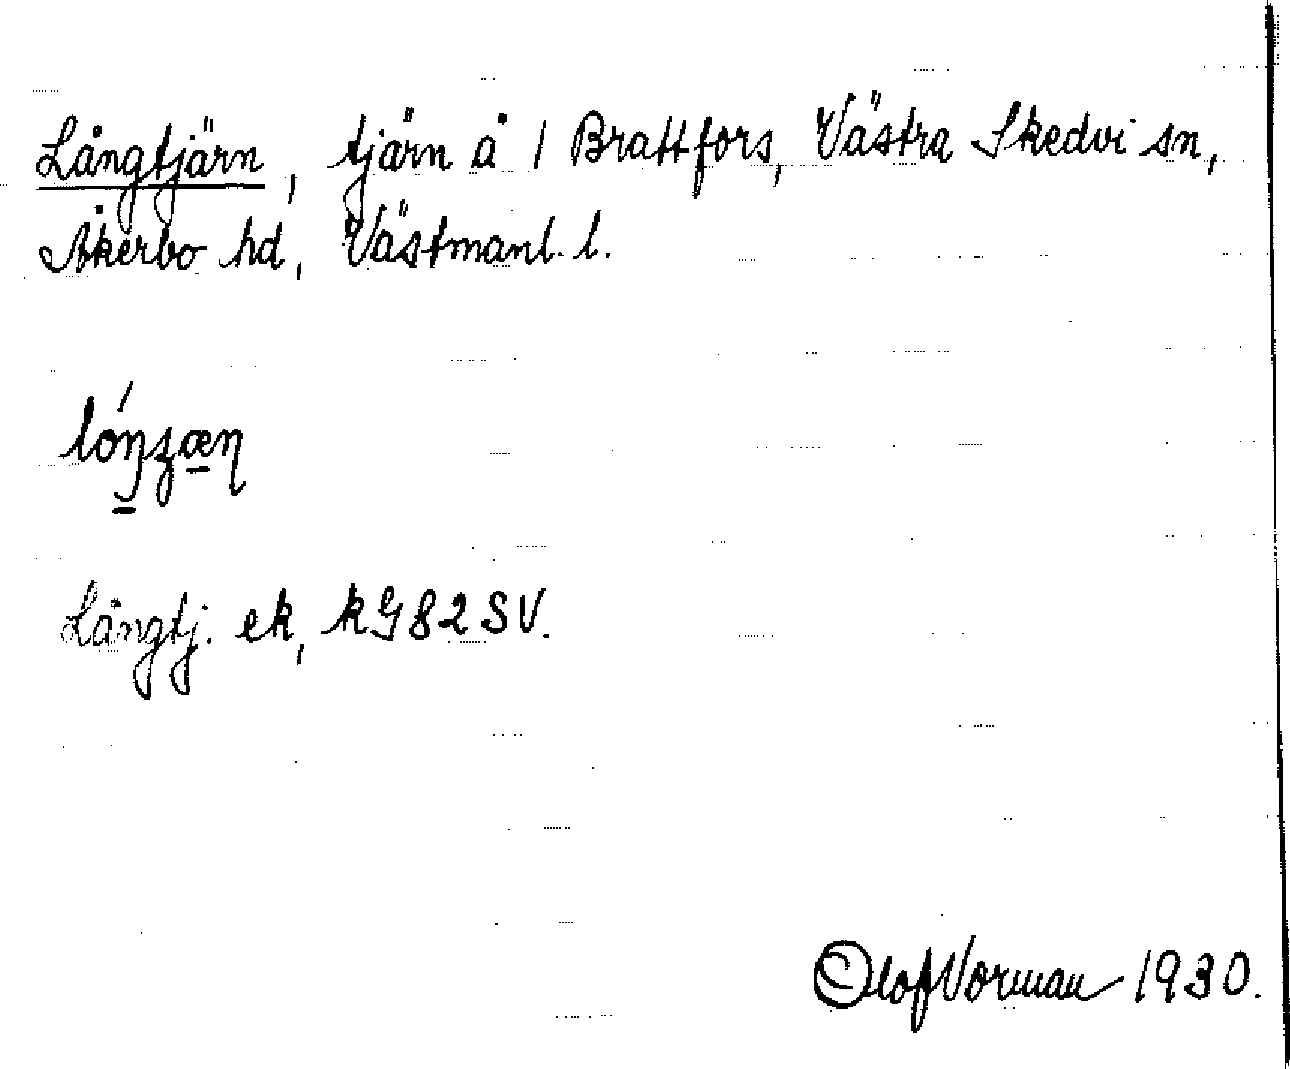 Långtjärn, tjärn å 1 Brattfors, Västra Skedvi sn,
Åkerbo hd, Västmanl. l.
Långtj. ek, kG82SV.
Olof Vorman 1930.